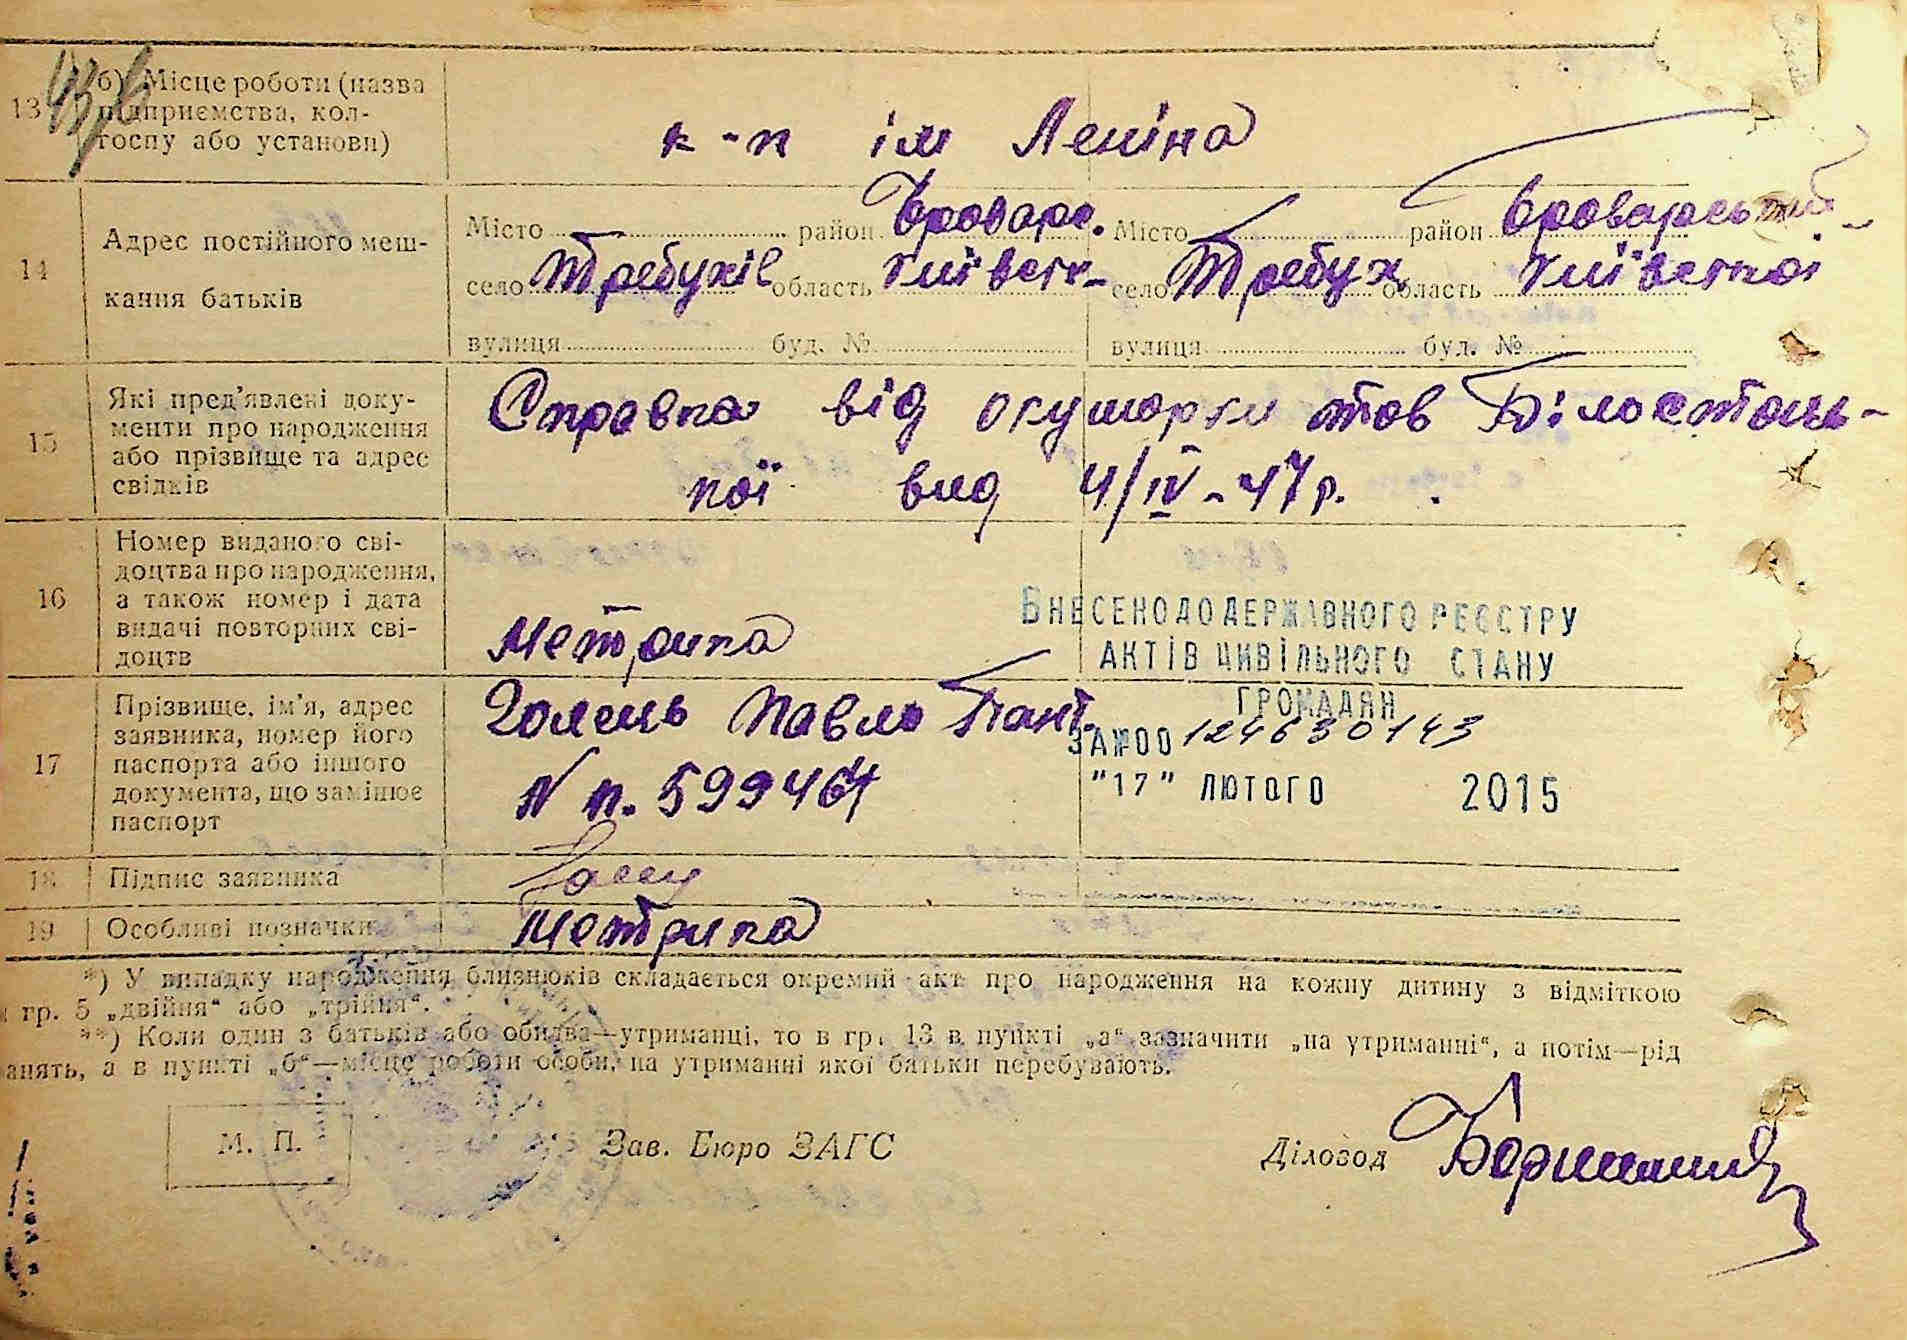 13 б) Місце роботи (назва
підприємства, кол-
госпу або установи)
к-п ім Леніна
14 Адрес постійного меш-
кання батьків
Місто район Броварс. Місто район Броварський
село Требухів область Київськ- село Требух область Київської
вулиця буд. № вулиця буд. №
15 Які пред'явлені доку-
менти про народження
або прізвище та адрес
свідків
Справка від окушорки тов Білостоць-
кої вид 4/IV-47р.
16 Номер виданого сві-
доцтва про народження,
а також номер і дата
видачі повторних сві-
доцтв
Метрика
ВНЕСЕНО ДО ДЕРЖАВНОГО РЕЄСТРУ
АКТІВ ЦИВІЛЬНОГО СТАНУ
ГРОМАДЯН
ЗА №00124630143
"17" ЛЮТОГО 2015
17 Прізвище, ім'я, адрес
заявника, номер його
паспорта або іншого
документа, що замінює
паспорт
Голець Павло Пант.
N п.
18 Підпис заявника
19 Особливі позначки
Метрика
*) У випадку народження близнюків складається окремий акт про народження на кожну дитину з відміткою
гр. 5 „двійня“ або „трійня“.
**) Коли один з батьків або обидва—утриманці, то в гр. 13 в пункті „а“ зазначити „на утриманні“, а потім—рід
анять, а в пункті „б“—місце роботи особи, на утриманні якої батьки перебувають.
М. П. Зав. Бюро ЗАГС Діловод